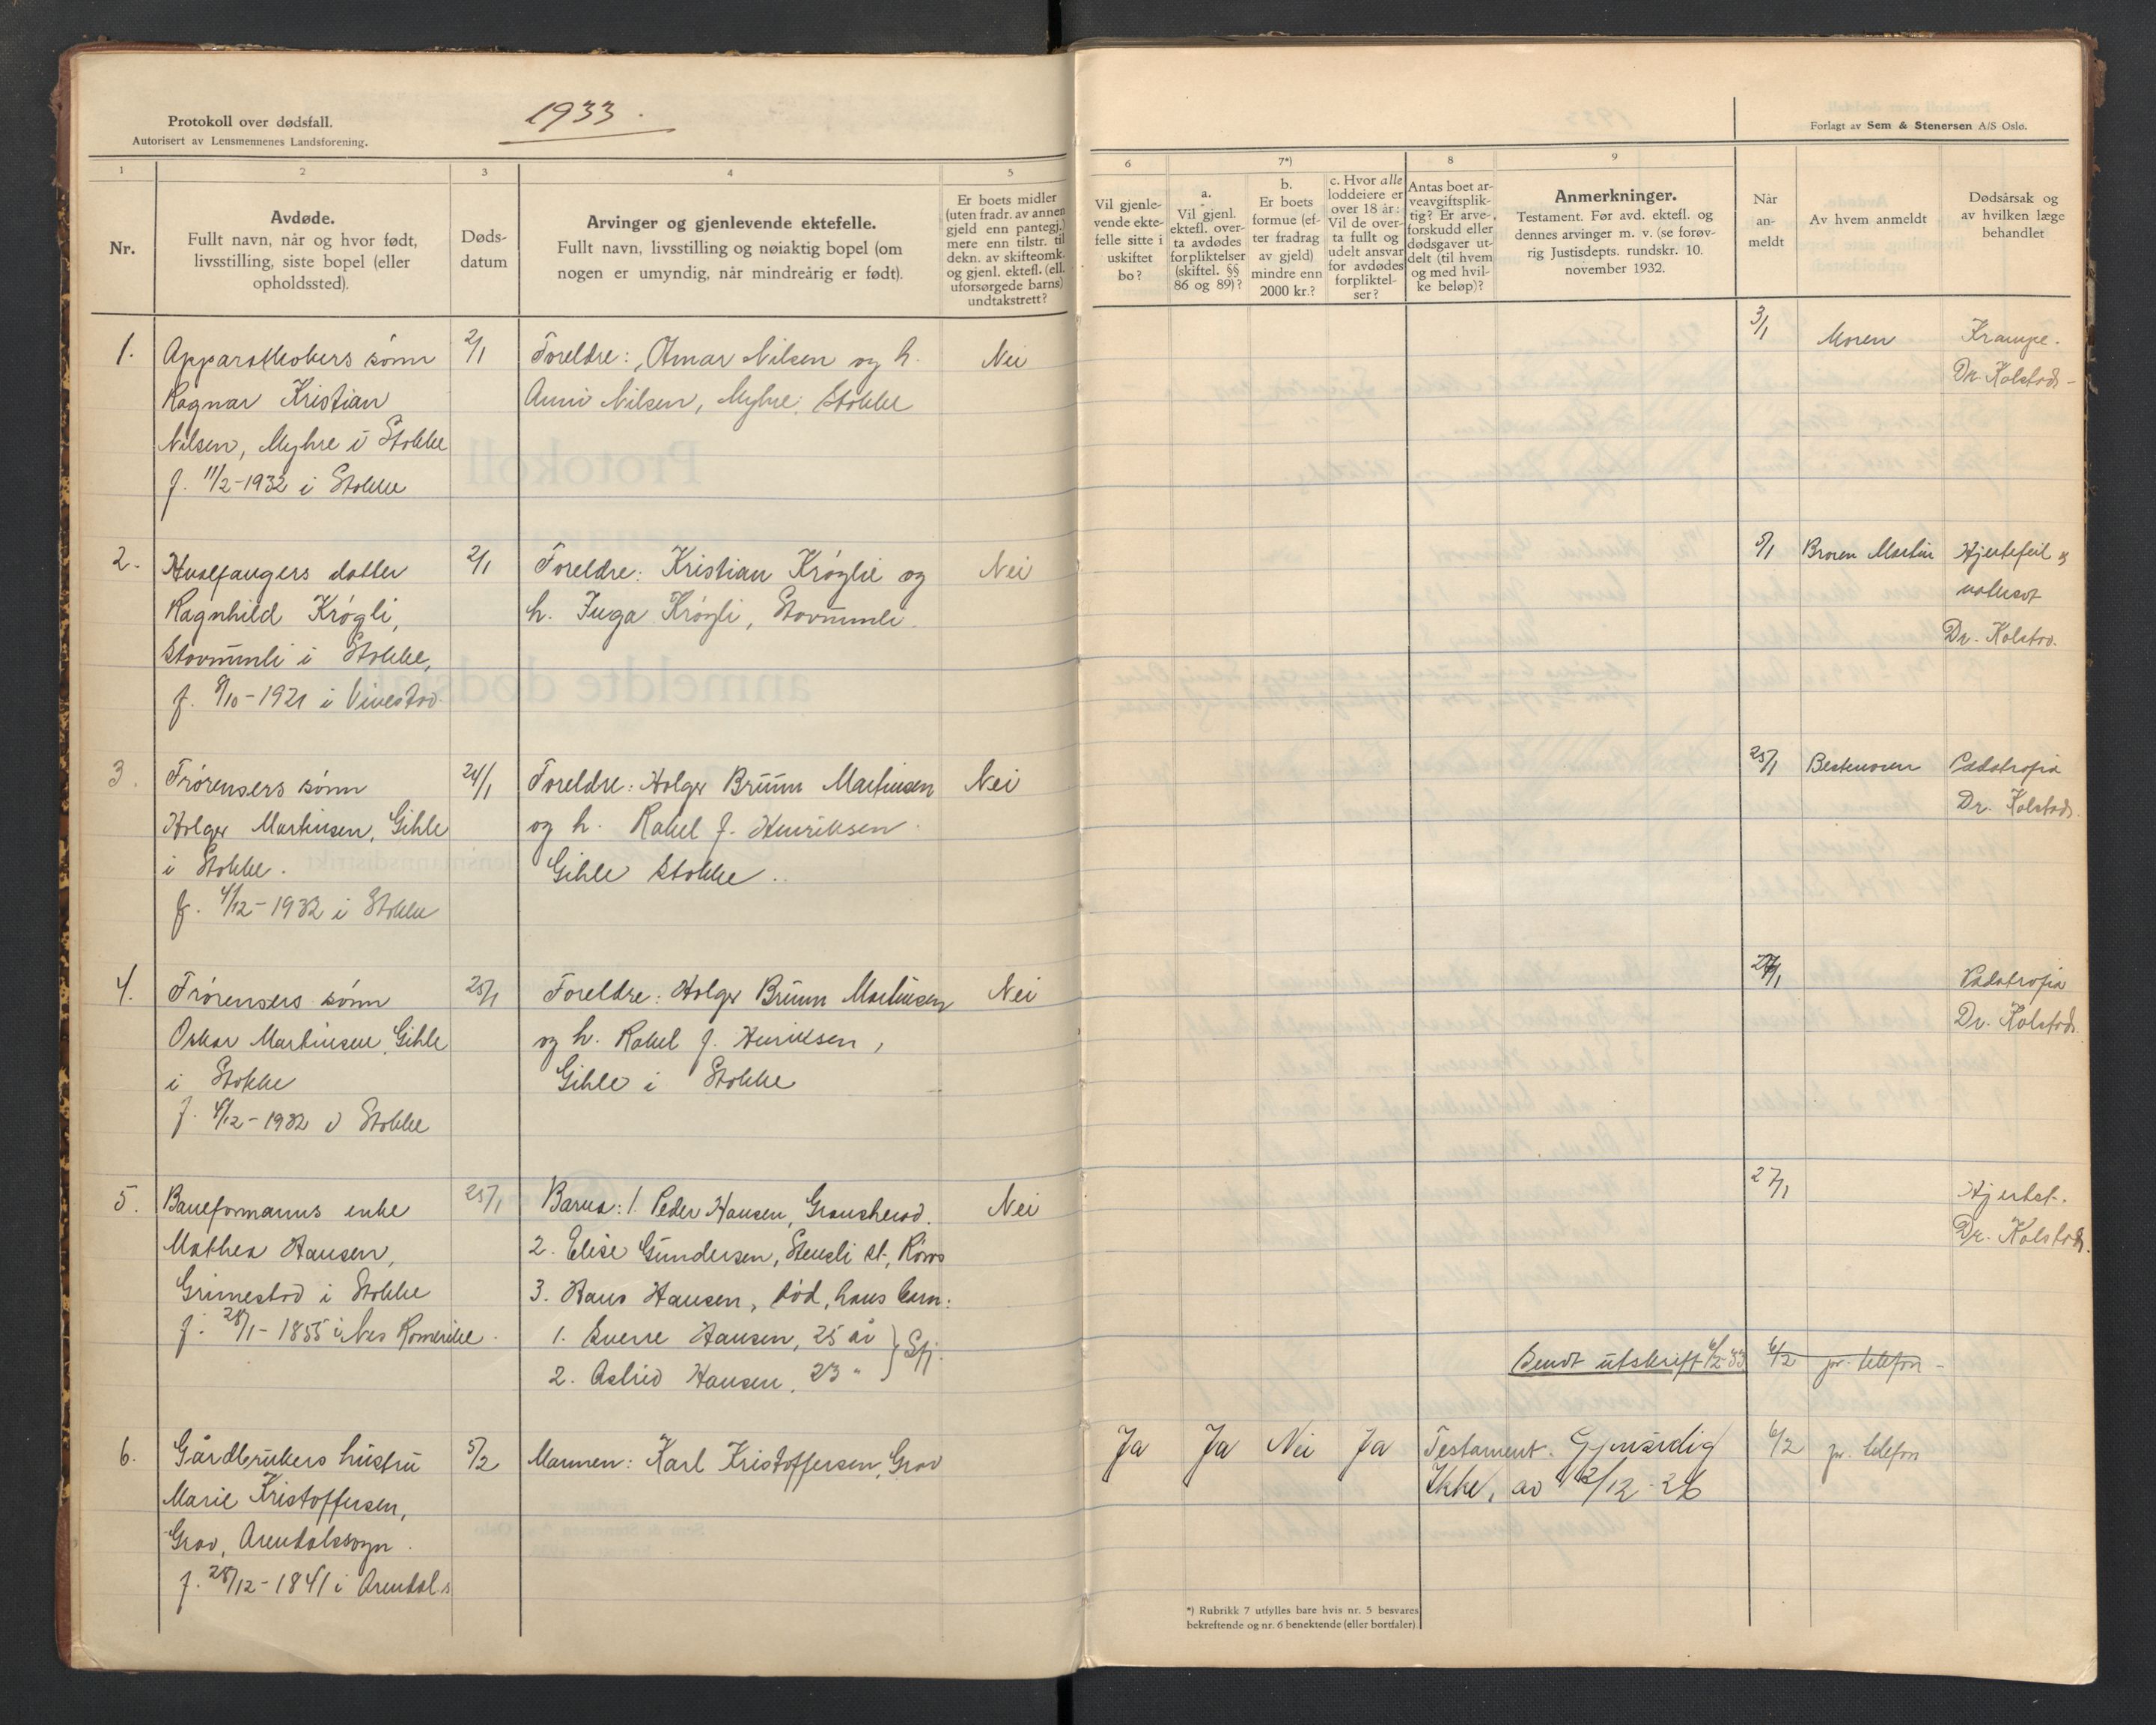 1933.
Protokoll over dødsfall.
Autorisert av Lensmennenes Landsforening.
1
2
3
4
5
Nr.
Avdøde.
Fullt navn, når og hvor født,
livsstilling, siste bopel (eller
opholdssted).
Døds-
datum
Arvinger og gjenlevende ektefelle.
Fullt navn, livsstilling og nøiaktig bopel (om
nogen er umyndig, når mindreårig er født).
Er boets midler
(uten fradr. av annen
gjeld enn pantegj.)
mere enn tilstr. til
dekn. av skifteomk.
og gjenl. ektefl. (ell.
uforsørgede barns)
undtakstrett?
1.
sønn
Ragnar Kristian
Nilsen, Myhre i Stokke
f. 11/2-1932 i Stokke
2/1
Foreldre: Otmar Nilsen og h.
Nilsen, Myhre, Stokke
Nei
2.
Hvalfangers datter
Ragnhild Krøgli,
i Stokke,
f. 8/10-1921 i Vivestad
2/1
Foreldre: Kristian Krøgli og
h. Inga Krøgli,
Nei
3.
Frørensers sønn
Holger Martinsen, Gihle
i Stokke.
f. 4/12-1932 i Stokke
24/1
Foreldre: Holger Bruun Martinsen
og h. Rakel f. Henriksen
Gihle Stokke.
Nei
4.
Frørensers sønn
Oskar Martinsen, Gihle
i Stokke
f. 4/12-1932 i Stokke
25/1
Foreldre: Holger Bruun Martinsen
og h. Rakel f. Henriksen,
Gihle i Stokke
Nei
5.
Baneformanns enke
Mathea Hansen,
Grimestad i Stokke
f. 28/1-1855 i Nes Romerike.
25/1
Barna: 1. Peder Hansen, Gransherad.
2. Elise Gundersen, Stensli st., Røros
3. Hans Hansen, død, hans barn:
1. Sverre Hansen, 25 år
2. Astrid Hansen, 23 "
} Sfj.
Nei
6.
Gårdbrukers hustru
Marie Kristoffersen,
Grav, Arendalssogn.
f. 28/12-1841 i Arendal s
5/2
Mannen: Karl Kristoffersen, Grav
Forlagt av Sem & Stenersen A/S Oslo.
6
7*)
8
9
Vil gjenle-
vende ekte-
felle sitte i
uskiftet
bo?
a.
Vil gjenl.
ektefl. over-
ta avdødes
forpliktelser
(skiftel. §§
86 og 89)?
b.
Er boets
formue (ef-
ter fradrag
av gjeld)
mindre enn
2000 kr.?
c. Hvor alle
loddeiere er
over 18 år:
Vil de over-
ta fullt og
udelt ansvar
for avdødes
forpliktel-
ser?
Antas boet ar-
veavgiftsplik-
tig? Er arve-
forskudd eller
dødsgaver ut-
delt (til hvem
og med hvil-
ke beløp)?
Anmerkninger.
Testament. Før avd. ektefl. og
dennes arvinger m. v. (se forøv-
rig Justisdepts. rundskr. 10.
november 1932.
Når
an-
meldt
Av hvem anmeldt
Dødsårsak og
av hvilken læge
behandlet
3/1
Moren
Krampe.
Dr. Kolstad-
5/1
Broren Martin
Hjertefeil og
Dr. Kolstad.
25/1
Bestemoren
Pædatrofia
Dr. Kolstad.
27/1
Pædatrofia
Dr. Kolstad.
27/1
Hjertef.
Dr. Kolstad.
Sendt utskrift 6/2-33
6/2
pr. telefon -
Ja
Ja
Nei
Ja
Testament. Gjensidig
Ikke, av 12/12-26
6/2
pr. telefon
*) Rubrikk 7 utfylles bare hvis nr. 5 besvares
bekreftende og nr. 6 benektende (eller bortfaler)